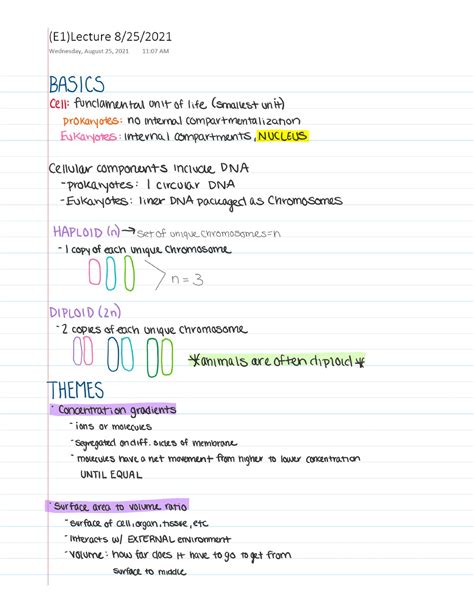 (E1)Lecture 8/25/2021
Wednesday, August 25, 2021 11:07 AM
BASICS
Cell: fundamental unit of life (smallest unit)
prokaryotes: no internal compartmentalization
Eukaryotes: internal compartments, NUCLEUS
Cellular components include DNA
- prokaryotes: 1 circular DNA
- Eukaryotes: liner DNA packaged as chromosomes
HAPLOID (n) → set of unique chromosomes=n
- 1 copy of each unique chromosome
n = 3
DIPLOID (2n)
- 2 copies of each unique chromosome
*animals are often diploid*
THEMES
· Concentration gradients
- ions or molecules
- segregated on diff. sides of membrane
- molecules have a net movement from higher to lower concentration
UNTIL EQUAL
· Surface area to volume ratio
- surface of cell, organ, tissue, etc
- Interacts w/ EXTERNAL environment
- volume: how far does it have to go to get from
surface to middle